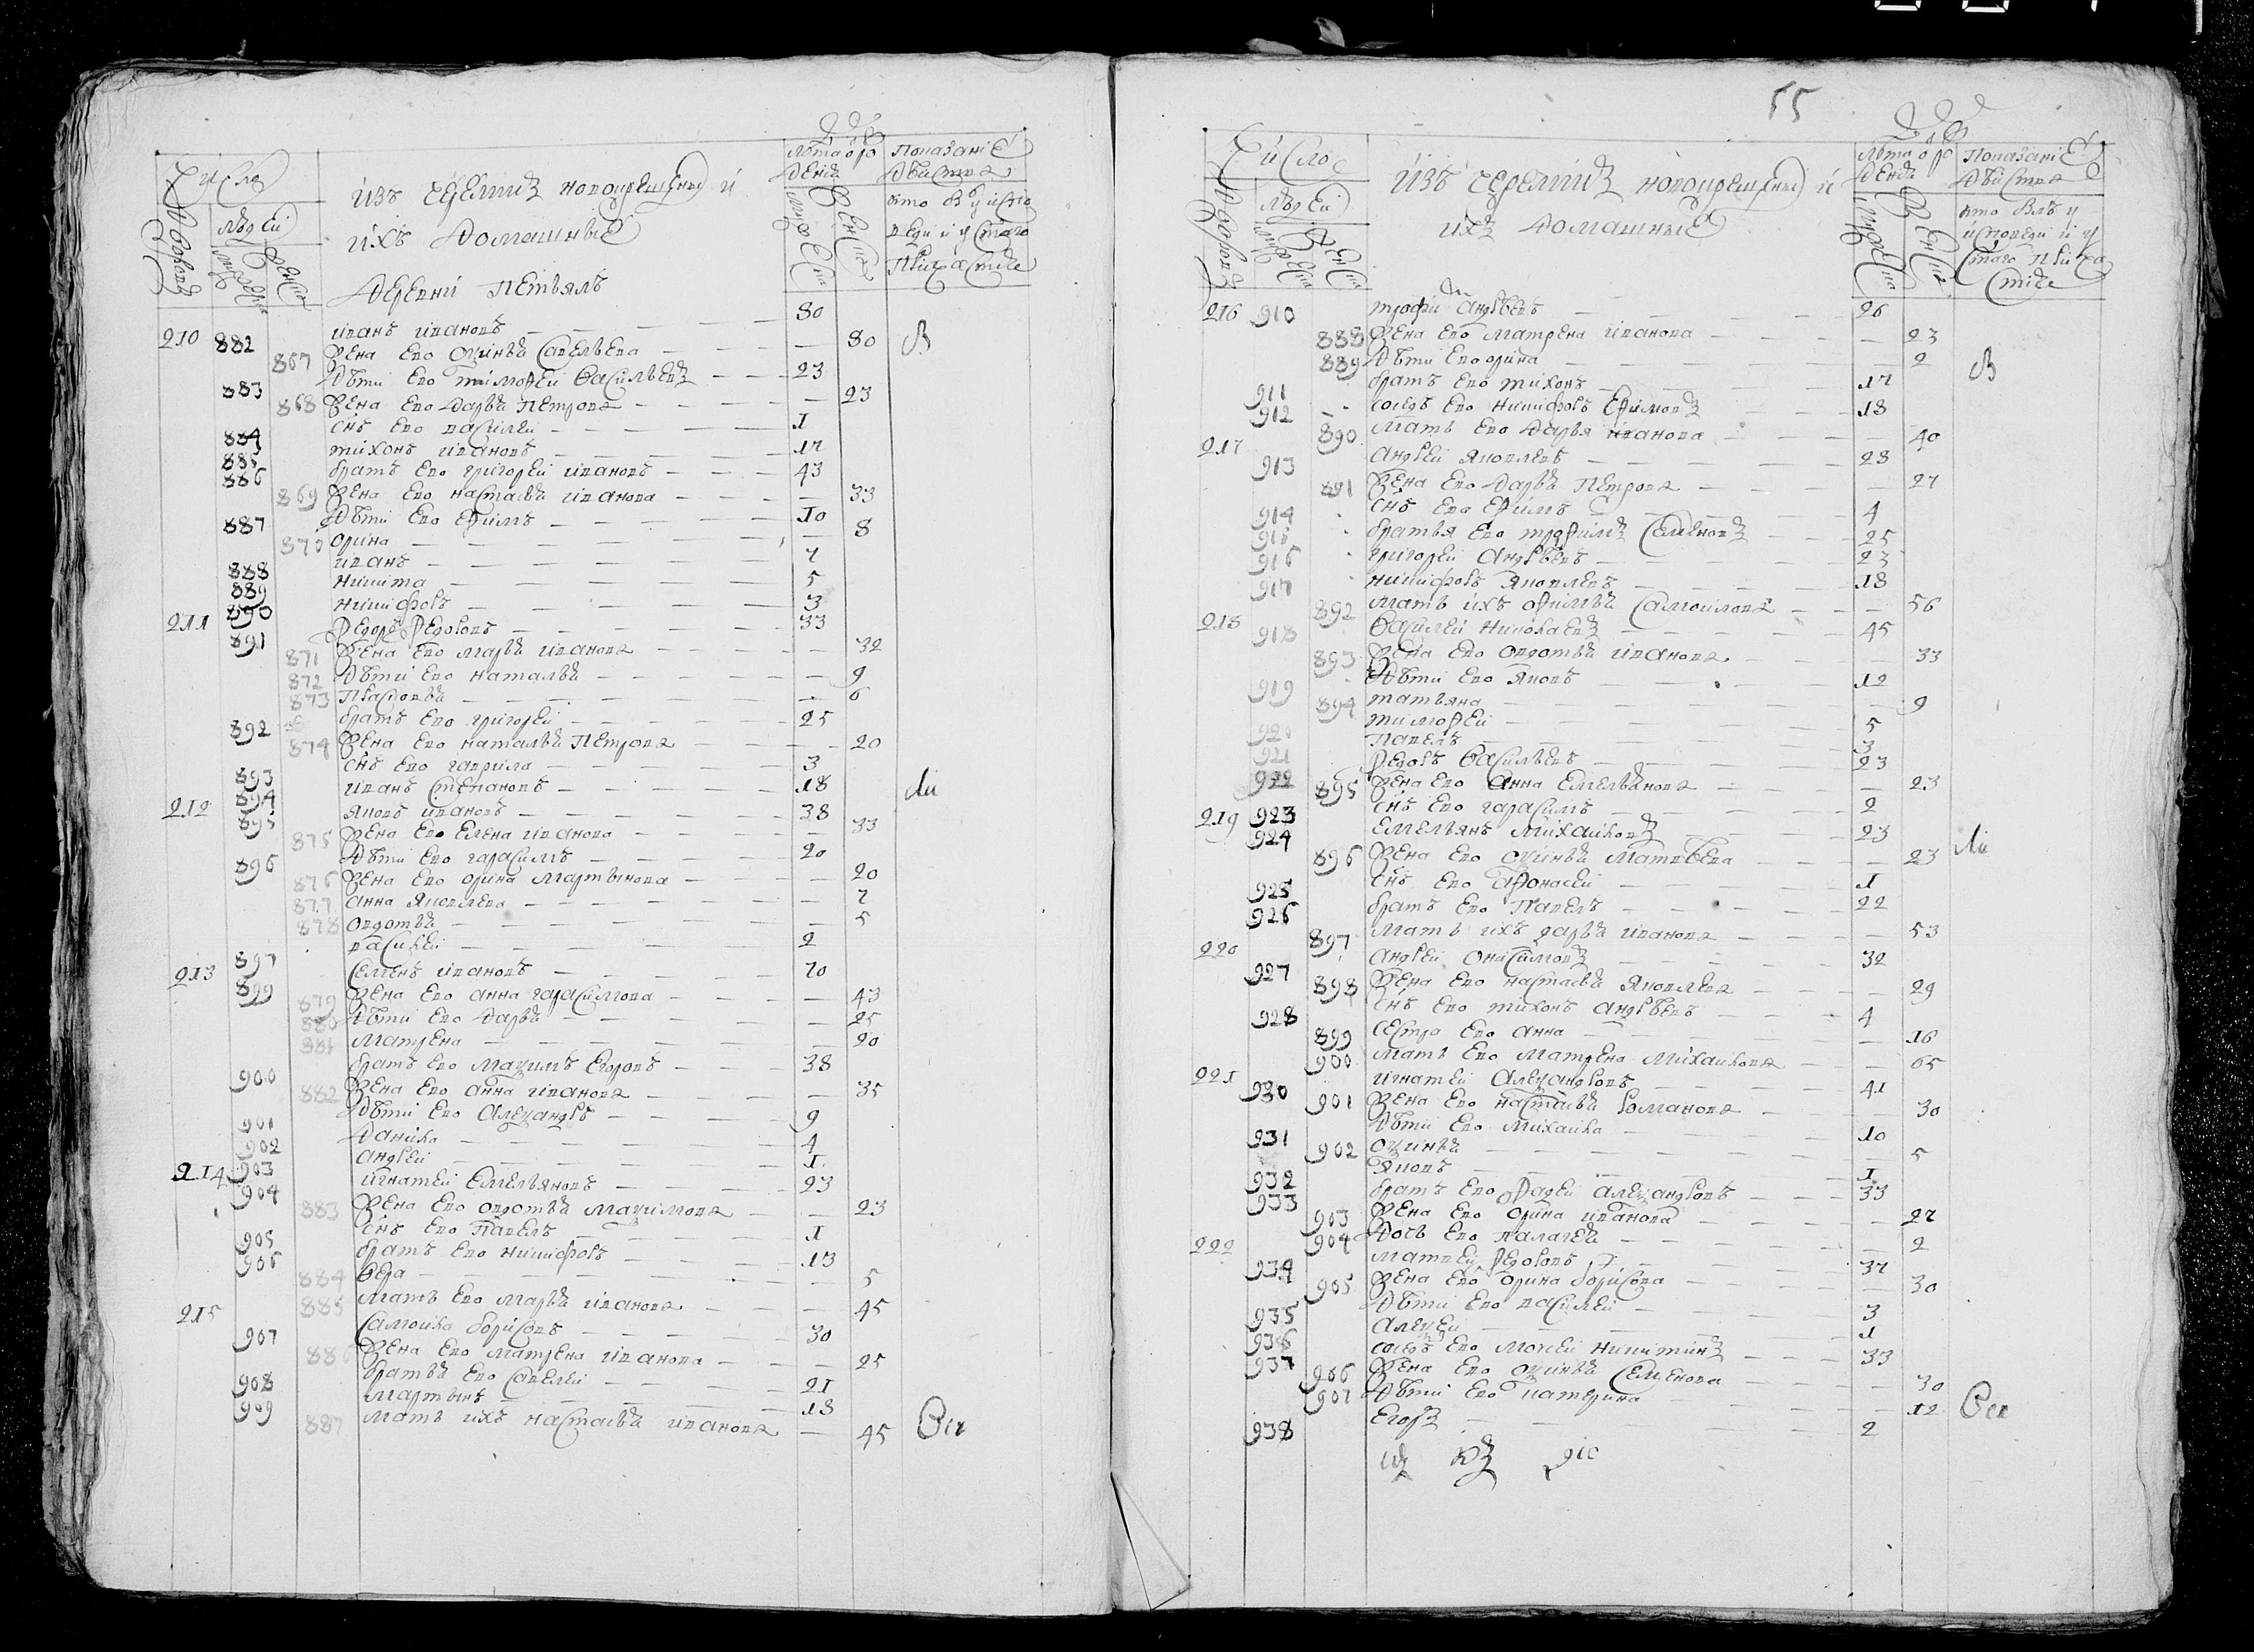 Число
дворовъ
людей
мужеска
женска
изъ черемисъ новокрещены и
ихъ домашные
деревни Петъялъ
лѣта от ро
дения
мужеска
женска
Показание
действа
кто былъ у испо
веди и у святаго
Причастия
210 882 иванъ ивановъ 80
867 жена ево Оксинья Савельева 80 В
883 дѣти ево тимофеи Васильевъ 23
868 жена ево дарья Петрова 23
884 снъ ево василеи 1
885 тихонъ ивановъ 17
886 братъ ево григореи ивановъ 43
869 жена ево настасья иванова 33
887 дѣти ево ефимъ 10
870 орина 8
888 иванъ 7
889 никита 5
890 никифоръ 3
211 891 Федоръ Федоровъ 33
871 жена ево марья иванова 32
872 дѣти ево наталья 9
873 Прасковья 6
892 братъ ево григореи 25
874 жена ево наталья Петрова 20
893 снъ ево гаврила 3
894 иванъ Степановъ 18 ли
212 895 яковъ ивановъ 38
875 жена ево Елена иванова 33
896 дѣти ево гарасимъ 20
876 жена ево орина мартынова 20
877 анна яковлева 7
878 овдотья 5
897 василеи 2
213 899 Семенъ ивановъ 70
879 жена ево анна гарасимова 43
880 дѣти ево дарья 25
881 матрена 20
900 братъ ево максимъ Егоровъ 38
882 жена ево анна иванова 35
901 дѣти ево Александръ 9
902 данила 4
903 андреи 1
214 904 игнатеи Емельяновъ 23
883 жена ево овдотья максимова 23
905 снъ ево Павелъ 1
906 братъ ево никифоръ 13
884 вера 5
885 мать ево марья иванова 45
215 907 Самоила борисовъ 30
886 жена ево матрена иванова 25
908 братья ево Савелеи 21
909 мартынъ 18
887 мать ихъ настасья иванова 45 Вси
55
Число
дворовъ
людеи
мужеска
женска
изъ черемисъ новокрещены и
ихъ домашные
лѣта от ро
дения
мужеска
женска
Показание
действа
кто былъ у
исповеди и у
святаго Прича
стия
216 910 трофимъ андрѣевъ 26
888 жена ево матрена иванова 23
889 дѣти ево орина 2 В
911 братъ ево тихонъ 17
912 соседъ ево никифоръ Ефимовъ 18
890 мать ево дарья иванова 40
217 913 андреи яковлевъ 28
891 жена ево дарья Петрова 27
914 снъ ево Ефимъ 4
915 братья ево трофимъ Семеновъ 25
916 григореи андрѣевъ 23
917 никифоръ яковлевъ 18
892 мать ихъ офимья Самоилова 56
218 918 Василеи николаевъ 45
893 жена ево овдотья иванова 33
919 дѣти ево яковъ 12
894 татьяна 9
920 тимофеи 5
921 Павелъ 3
922 Федоръ Васильевъ 23
895 жена ево анна Емельянова 23
923 снъ ево гарасимъ 2
219 924 Емельянъ михаиловъ 23
896 жена ево оксинья матвѣева 23 ли
925 снъ ево афонасеи 1
926 братъ ево Павелъ 22
897 мать ихъ дарья иванова 53
220 927 андреи онисимовъ 32
898 жена ево настасья яковлева 29
928 снъ ево тихонъ андрѣевъ 4
899 сестра ево анна 16
900 мать ево матрена михаилова 65
221 930 игнатеи Александровъ 41
901 жена ево настасья романова 30
931 дѣти ево михаила 10
902 оксинья 5
932 яковъ 1
933 братъ ево Фадеи александровъ 33
903 жена ево орина иванова 27
904 дочь ево палагея 2
222 934 матвеи Федоровъ 37
905 жена ево орина борисова 30
935 дѣти ево василеи 3
936 алексеи 1
937 соседъ ево моисеи никитинъ 33
906 жена ево оксинья Семенова 30
907 дѣти ево катерина 12 Вси
938 Егоръ 2